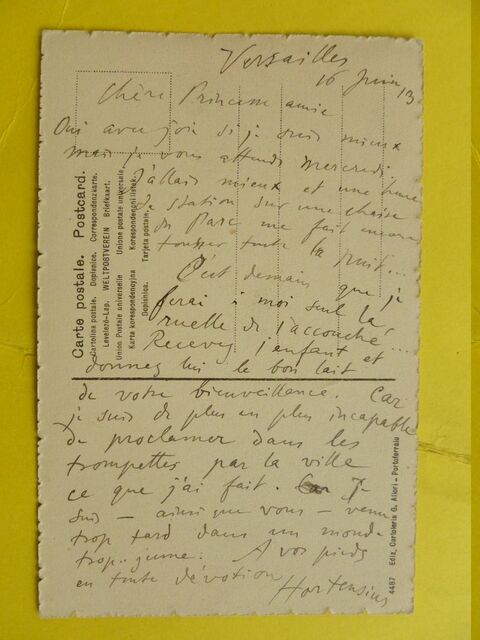 Versailles
16 Juin 13
Chère Princesse amie
Oui avec joie si je suis mieux
mais je vous attends mercredi.
J'allais mieux et une heure
de station sur une chaise
du Parc me fait encore
tousser toute la nuit...
C'est demain que je
ferai à moi seul la
ruelle de l'accouchée...
Recevez l'enfant et
donnez lui le bon lait
de votre bienveillance. Car
je suis de plus en plus incapable
de proclamer dans les
trompettes par la ville
ce que j'ai fait. Car Je
suis – ainsi que vous – venu
trop tard dans un monde
trop.. jeune. A vos pieds
en toute dévotion
Hortensius
Carte postale. Postcard.
Cartolina postale. Dopisnice. Correspondenzkarte.
Levelező-Lap. WELTPOSTVEREIN Briefkaart.
Union Postale universelle Unione postale universale
Karta korespondencyjna Korespondenční lístek
Dopisnica. Tarjeta postale.
4487 Ediz. Cartoleria G. Allori - Portoferraio